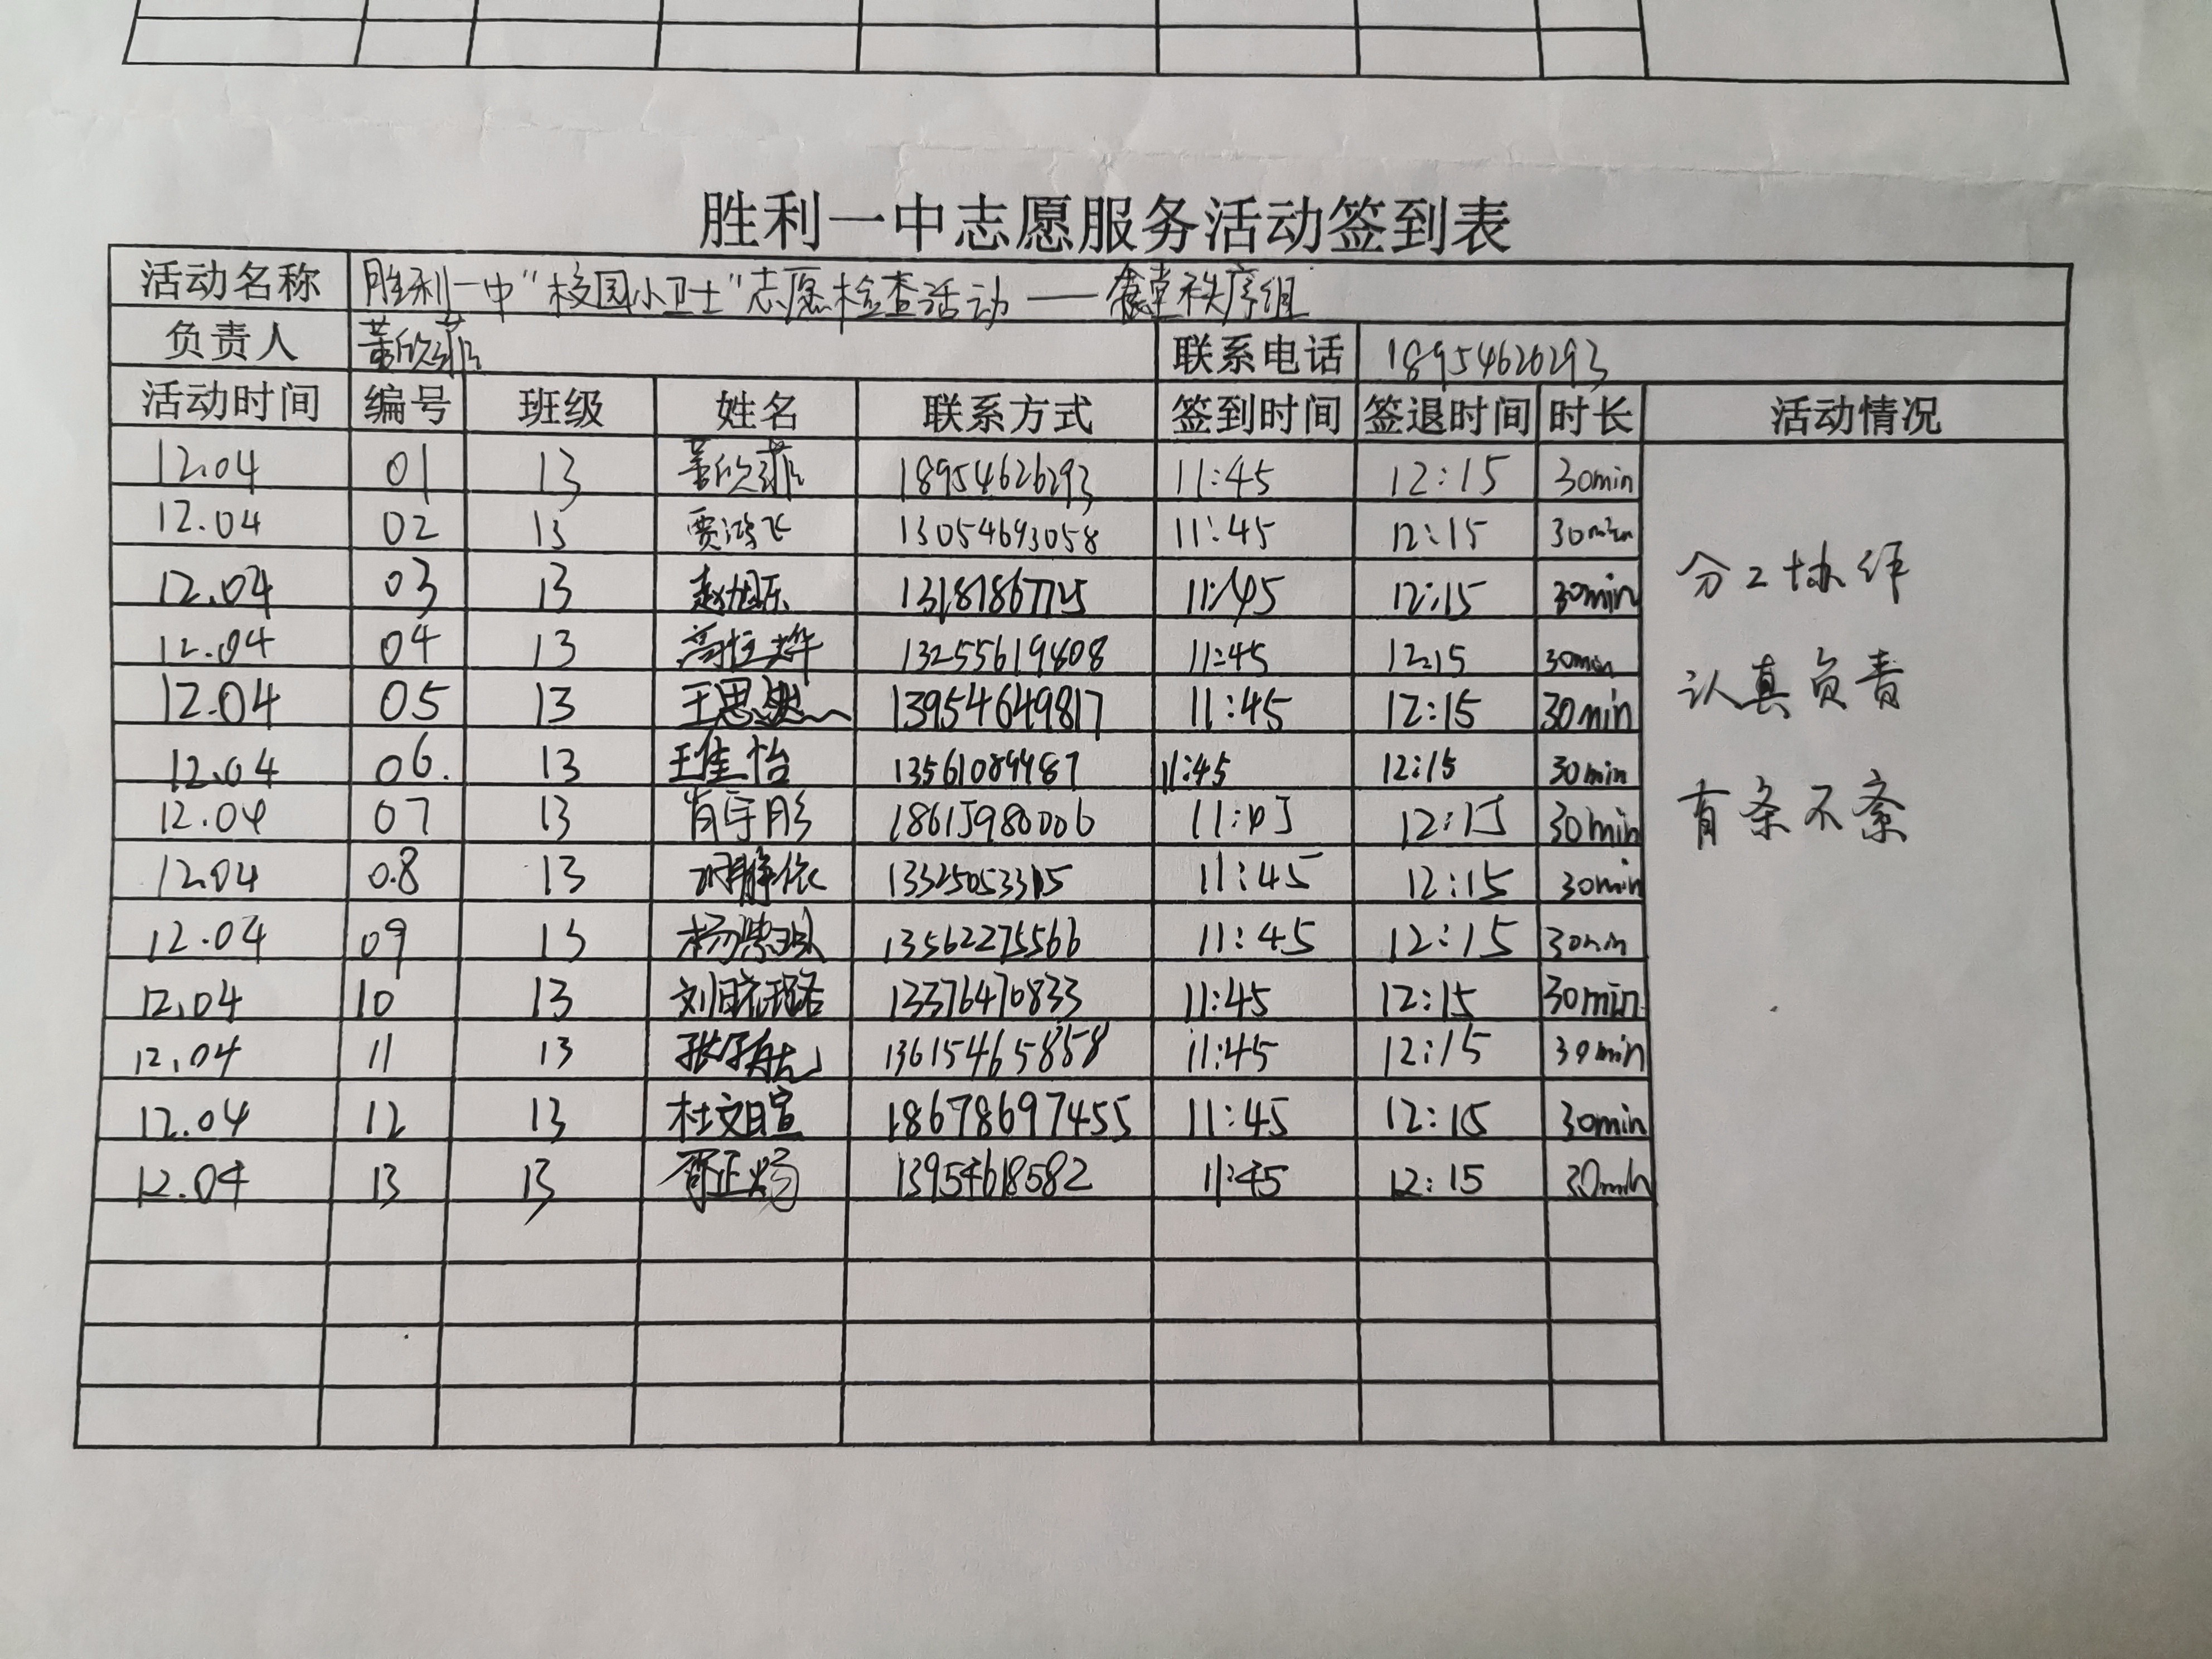 胜利一中志愿服务活动签到表
活动名称 胜利一中"校园小卫士"志愿检查活动——食堂秩序组
负责人 董欣菲 联系电话 18954626293
活动时间 编号 班级 姓名 联系方式 签到时间 签退时间 时长 活动情况
12.04 01 13 董欣菲 18954626293 11:45 12:15 30min
12.04 02 13 贾鸿飞 13054693058 11:45 12:15 30min
12.04 03 13 13181867725 11:45 12:15 30min
12.04 04 13 13255619808 11:45 12:15 30min
12.04 05 13 王思 13954649817 11:45 12:15 30min
12.04 06. 13 王佳怡 13561089987 11:45 12:15 30min
12.04 07 13 肖宇彤 18615980006 11:45 12:15 30min
12.04 08 13 13325053315 11:45 12:15 30min
12.04 09 13 杨 13562275566 11:45 12:15 30min
12.04 10 13 刘 13376470833 11:45 12:15 30min
12.04 11 13 张 13615465858 11:45 12:15 30min
12.04 12 13 杜文暄 18678697455 11:45 12:15 30min
12.04 13 13 13954618582 11:45 12:15 30min
分工协作
认真负责
有条不紊